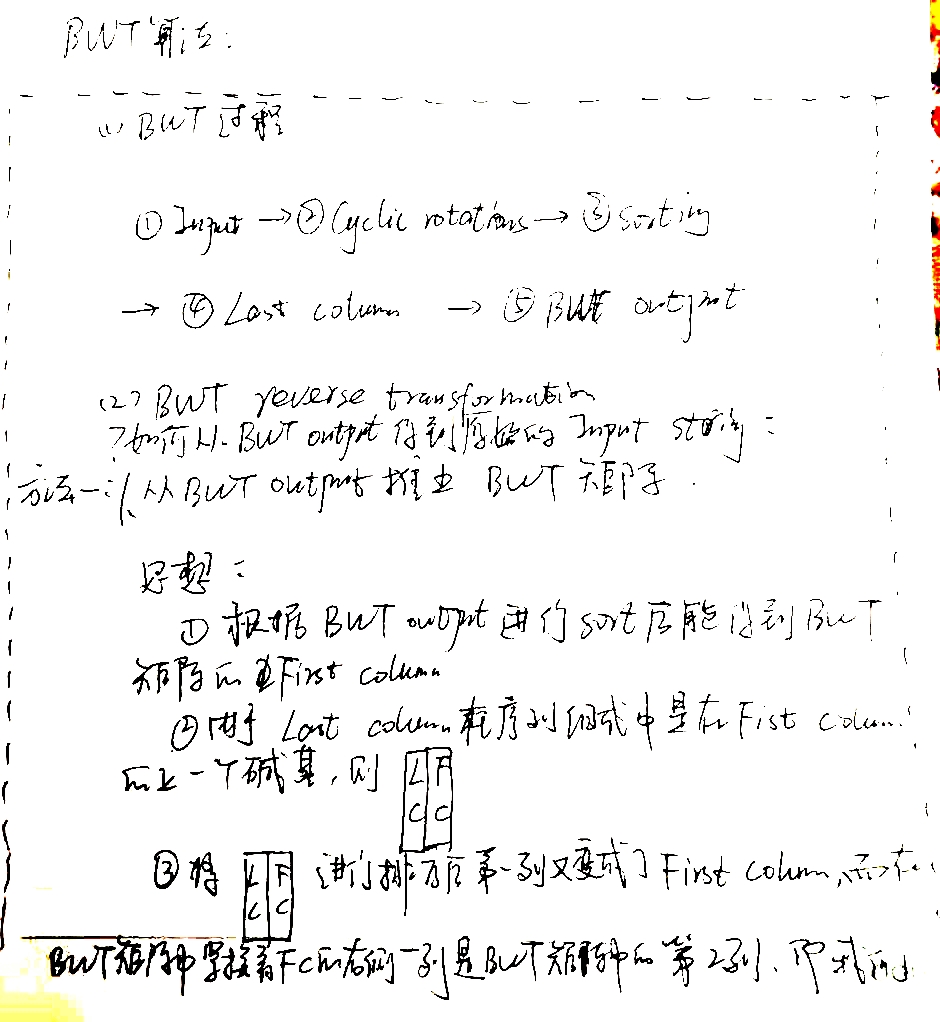 BWT算法:
(1) BWT过程
① Input → ② Cyclic rotations → ③ sorting
→ ④ Last column → ⑤ BWT output
(2) BWT reverse transformation
?如何从BWT output得到原始的 Input string:
方法一: 从BWT output推出 BWT 矩阵.
思想:
① 根据BWT output进行sort后能得到BWT
矩阵的First column
② 由于 Last column在序列组成中是在Fist colum
的上一个碱基,则 L F
C C
③ 将 L F 进行排序后第一列又变成了First column,而在
C C
BWT矩阵中紧接着FC的右侧一列是BWT矩阵中的第2列,即我们